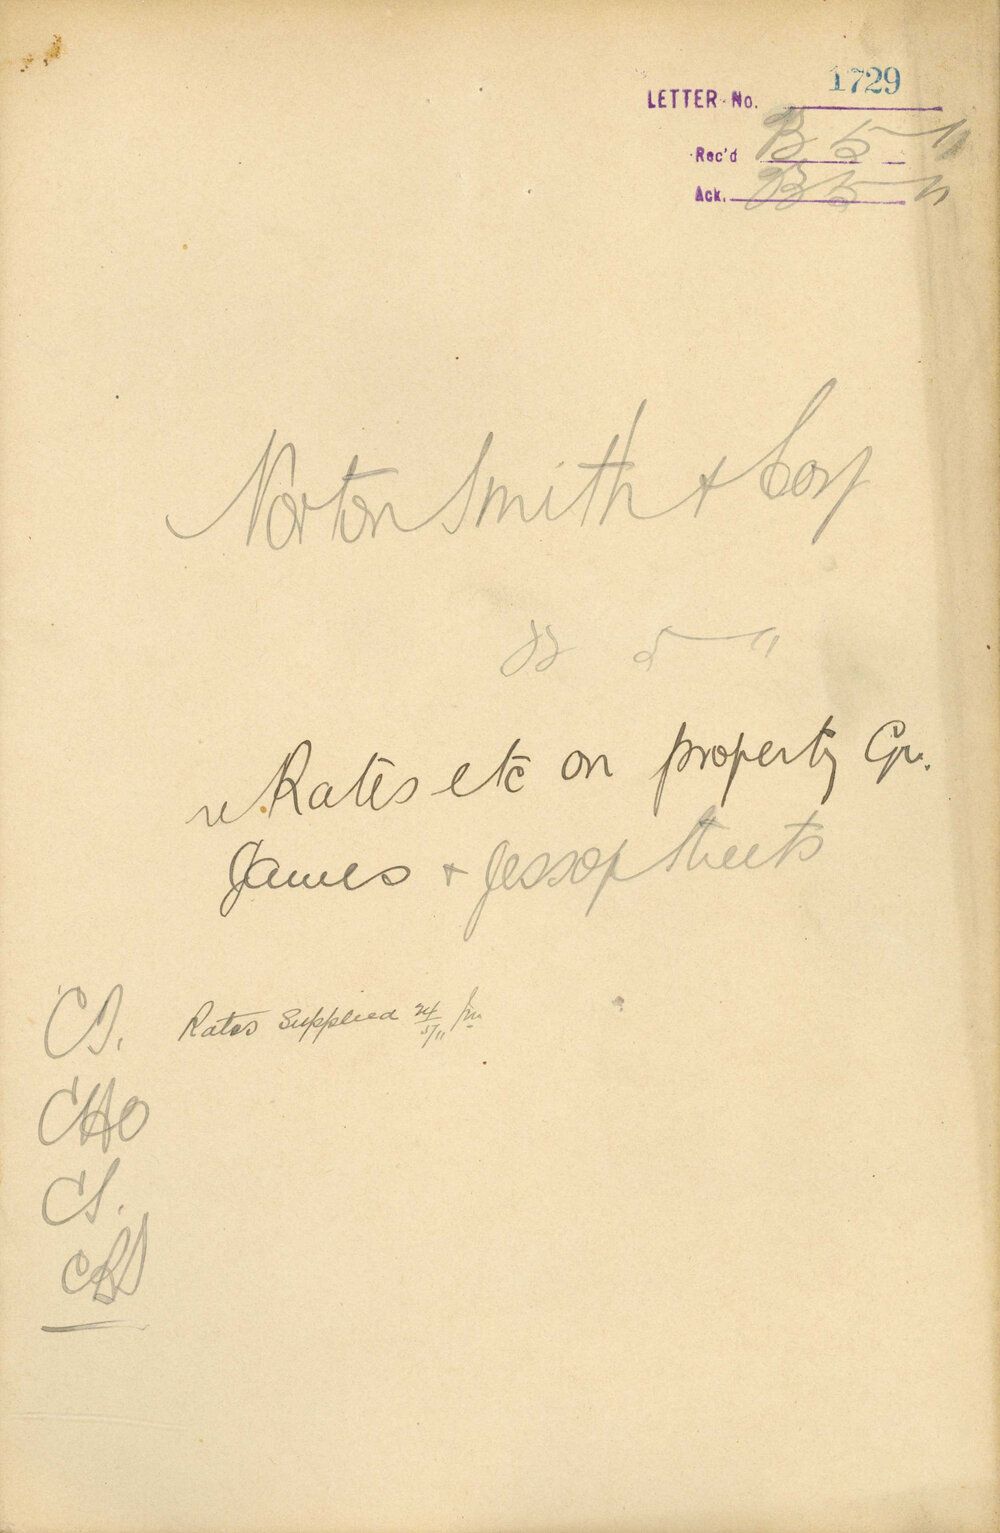 LETTER No. 1729
Rec'd 5 11
Ack. 5 11
Norton Smith & Coy
5 11
re Rates etc on property Cr.
James & Jessop Streets
CS. Rates Supplied 24/5/11
CHO
CS.
CBS